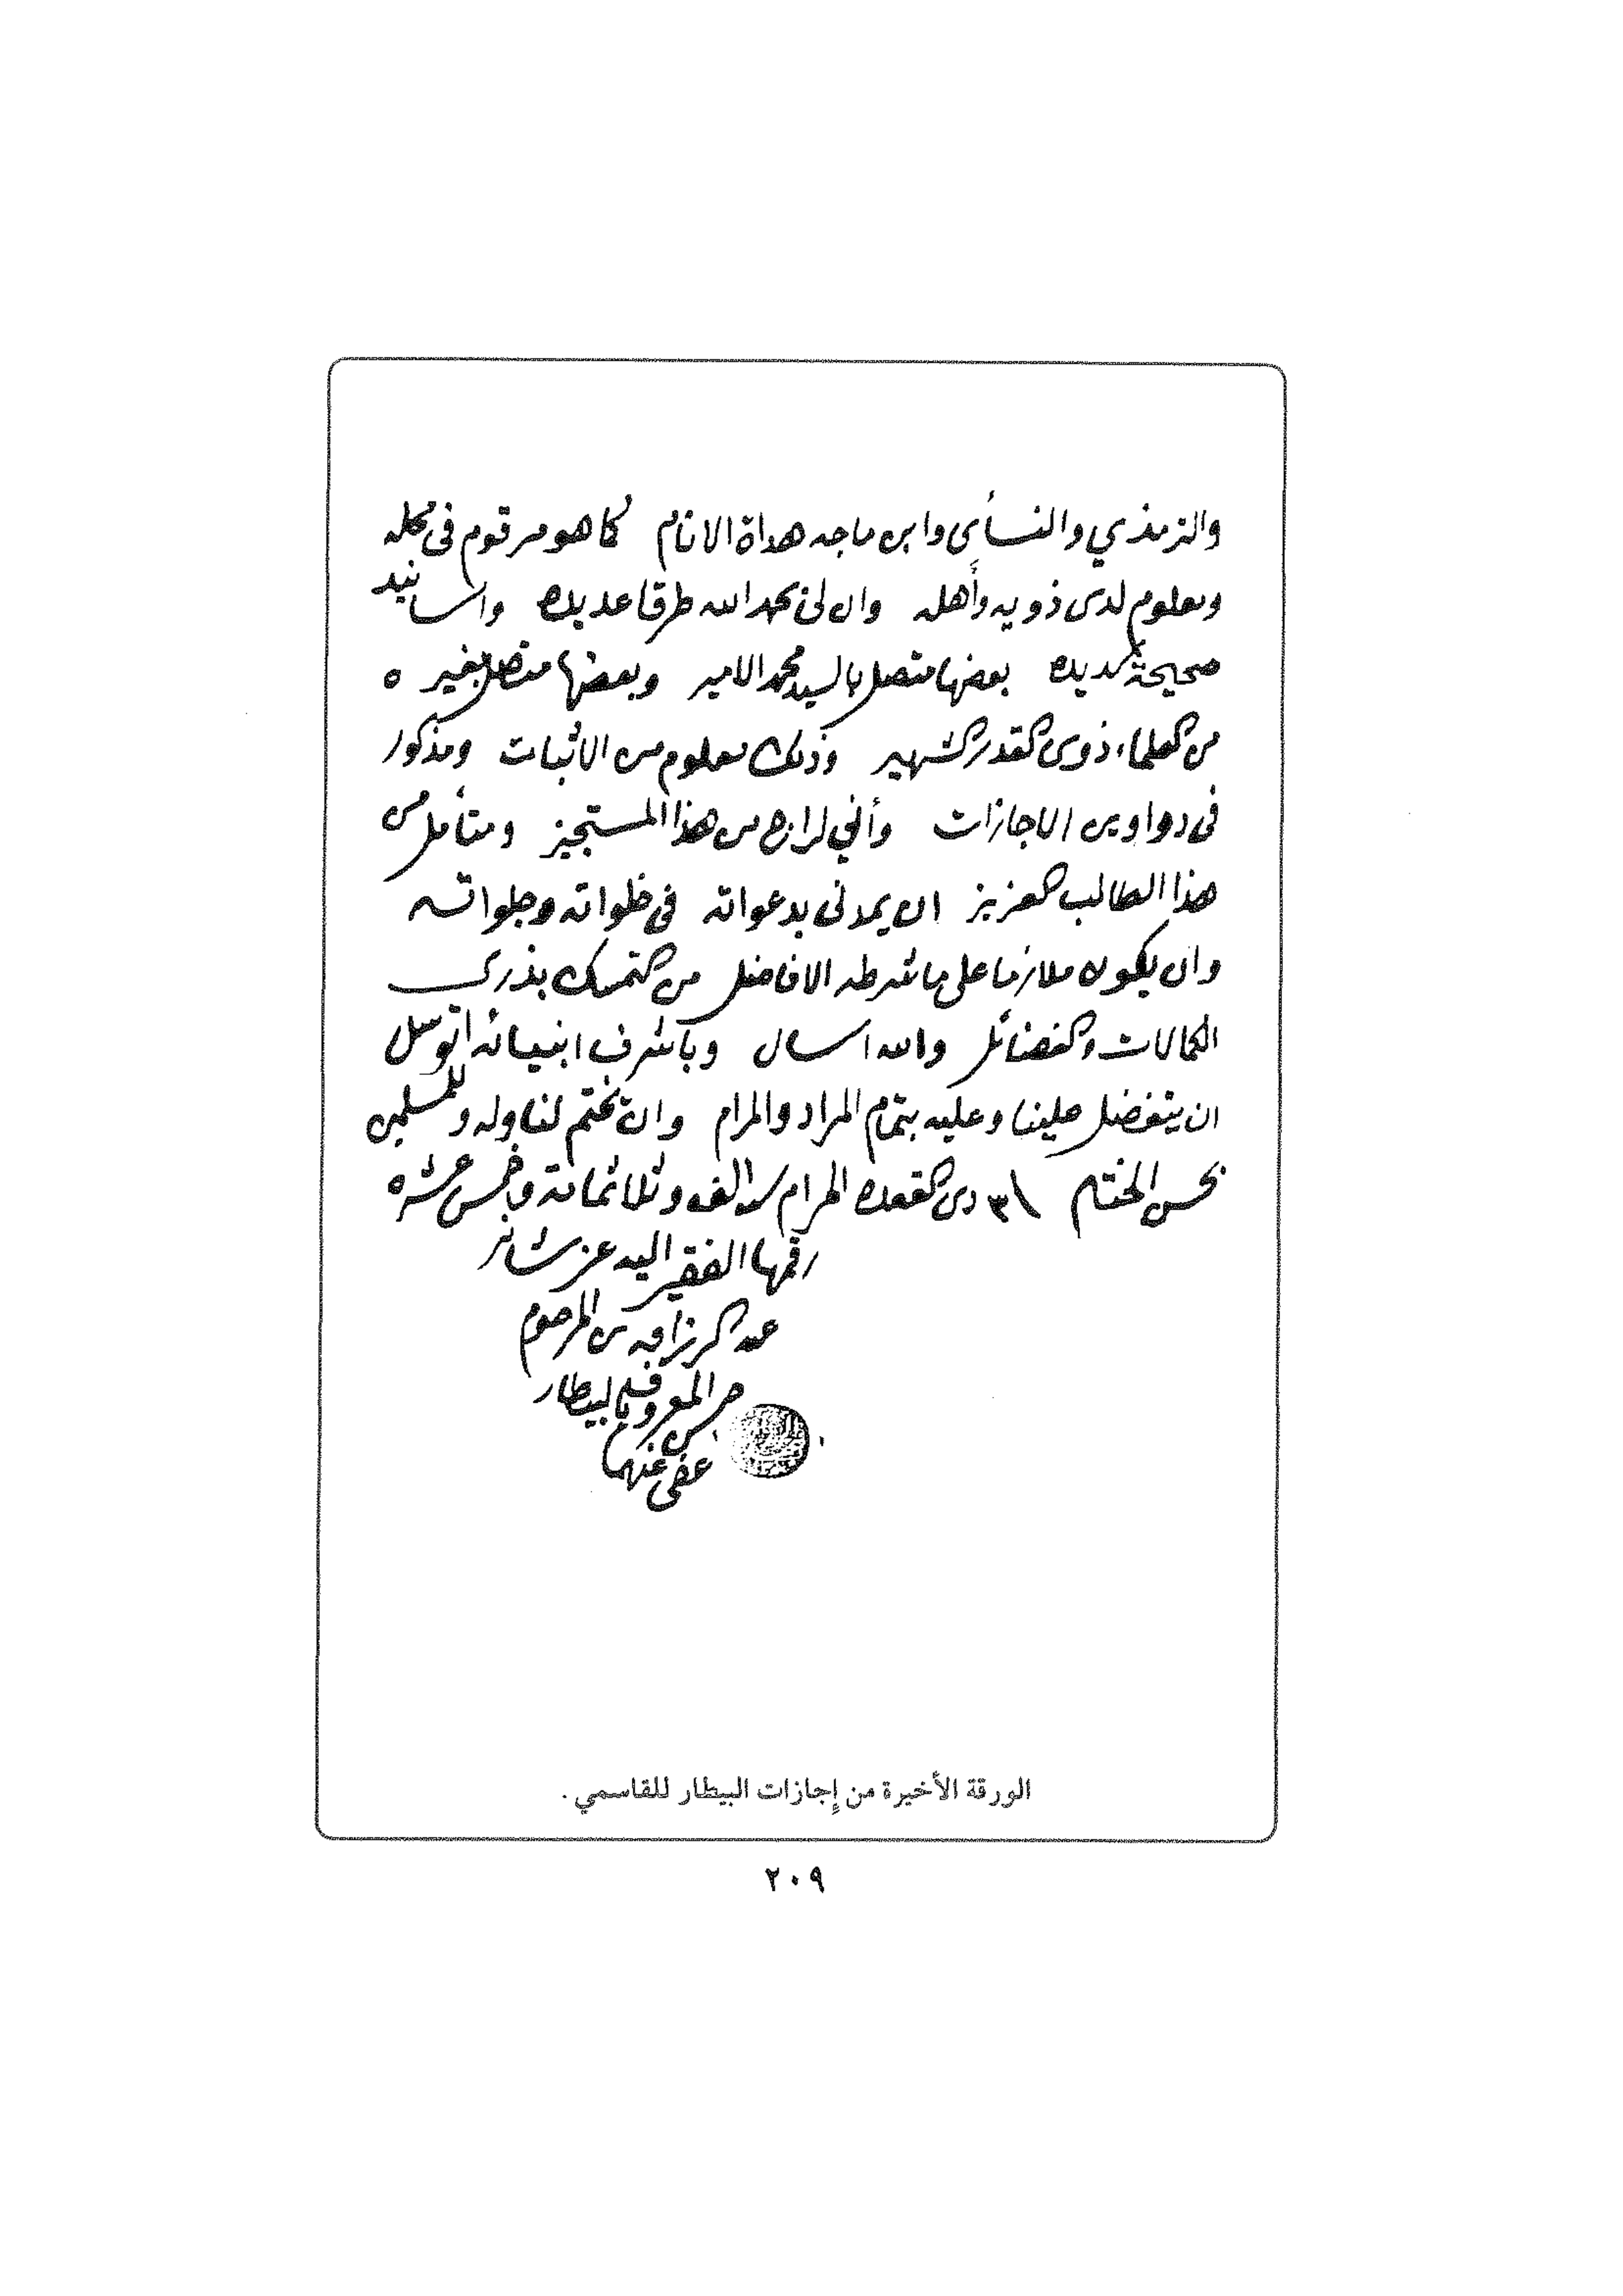 والترمذي والنسأى وابن ماجه هداة الانام كما هو مرقوم فى محله
ومعلوم لدى ذويه وأهله وان لى بحمد الله طرقا عديده واسانيد
صحيحة سديده بعضها متصل بالسيد محمد الامير وبعضها متصل بغيره
من العلماء ذوى القدر الشهير وذلك معلوم من الاثبات ومذكور
فى دواوين الاجازات وأني لراج من هذا المستجيز ومتأمل من
هذا الطالب العزيز ان يمدنى بدعواته فى خلواته وجلواته
وان يكون ملازما على ما شرطه الافاضل من التمسك بذرى
الكمالات والفضائل والله اسال وباشرف انبيائه اتوسل
ان يتفضل علينا وعليه بتمام المراد والمرام وان يختم لنا وله وللمسلمين
بحسن الختام ٣ ذى القعده الحرام سنة الف وثلاثمائة وخمس عشره
رقمها الفقير اليه عز شانه
عبد الرزاق بن المرحوم
حسن المعروف بالبيطار
عفى عنهما
الورقة الأخيرة من إجازات البيطار للقاسمي .
٢٠٩